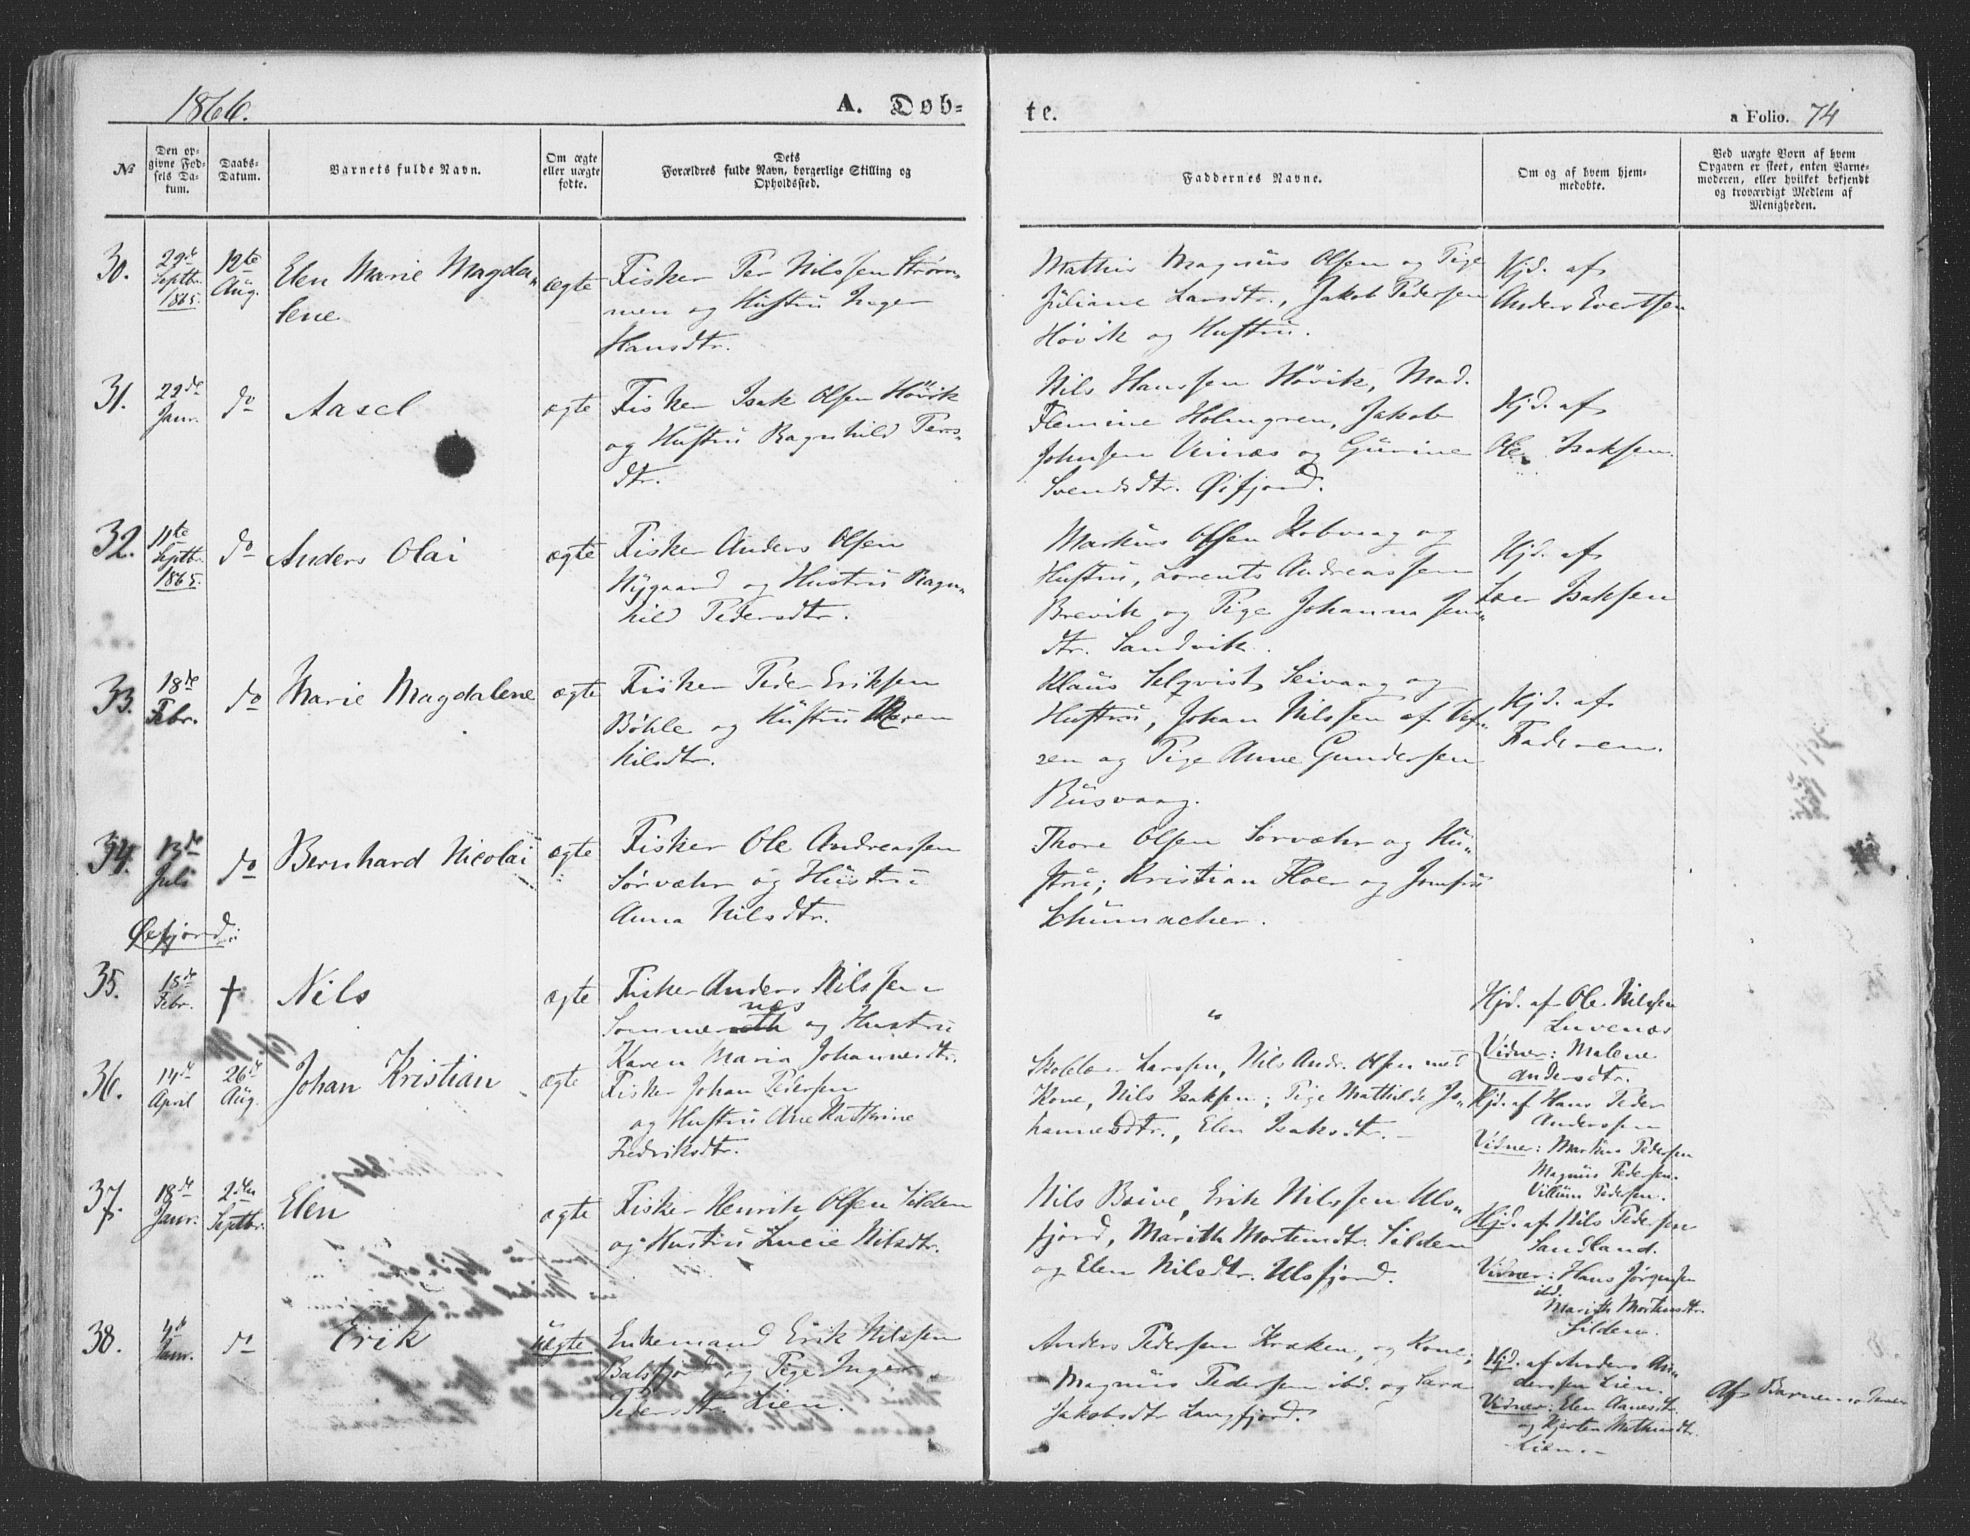 1866.
A. Døb-
te.
a Folio. 74
№
Den op-
givne Fød-
sels Da-
tum.
Daabs-
Datum.
Barnets fulde Navn.
Om ægte
eller uægte
fødte.
Dets
Forældres fulde Navn, borgerlige Stilling og
Opholdssted.
Faddernes Navne.
Om og af hvem hjem-
medøbte.
Ved uægte Børn af hvem
Opgaven er skeet, enten Barne-
moderen, eller hvilket bekjendt
og troværdigt Medlem af
Menigheden.
30.
29de
Septbr.
1865.
12te
Aug.
Elen Marie Magda„
lene
ægte
Fisker Per Nilssen Strøm„
men og Hustru Inger
Hansdtr.
Mathis Magnus Olsen og Pige
Juliane Larsdtr., Jakob Pedersen
Høvik og Hustru.
Hjd. af
Anders Evertsen
31.
22de
Janr.
do
Aasel
ægte
Fisker Isak Olsen Høvik
og Hustru Ragnhild Pers„
dtr.
Nils Hanssen Høvik, Mad.
Flemine Holmgren, Jakob
Johnsen Vinnæs og Gurine
Svendsdtr. Øxfjord.
Hjd. af
Ole Isaksen.
32.
11te
Septbr.
1865.
do
Anders Olai
ægte
Fisker Anders Olsen
Nygaard og Hustru Ragn„
hild Pedersdtr.
Markus Olsen Kobvaag og
Hustru, Lorents Andreassen
Brevik og Pige Johanna Jens„
dtr. Sandvik.
Hjd. af
Isaksen
33.
18de
Febr.
do
Marie Magdalene
ægte
Fisker Peder Eriksen
Bøhle og Hustru Maren
Nilsdtr.
Klaus Selqvist, Seivaag og
Hustru, Johan Nilssen af Vef„
sen og Pige Anne Gundersen
Rusvaag.
Hjd. af
Faderen.
34.
13de
Juli
do
Bernhard Nicolai
ægte
Fisker Ole Andreassen
Sørvæhr og Hustru
Anna Nilsdtr.
Thore Olsen Sørvæhr og Hu„
stru; Kristian Floer og Jomfru
Schumacher.
Øxfjord:
35.
15de
Febr.
†
Nils
ægte
Fisker Anders Nilssen
næs
Sommer og Hustru
Karen Maria Johannesdtr.
„
Hjd. af Ole Nilssen
Luvenæs
Vidner: Malene
Andersdtr.
36.
14de
April
26de
Aug.
Johan Kristian
ægte
Fisker Johan Pedersen
og Hustru Ane Kathrine
Fredriksdtr.
Larssen, Nils Andr. Olsen med
Kone, Nils Isaksen; Pige Mathilde Jo„
hannesdtr., Elen Isaksdtr.
Hjd. af Hans Peder
Anderssen
Vidner: Martius Pedersen
Magnus Pedersen.
Villum Pedersen.
37.
18de
Janr.
2den
Septbr.
Elen
ægte
Fisker Henrik Olsen Silden
og Hustru Lucie Nilsdtr.
Nils Baive, Erik Nilssen Uls„
fjord, Marith Mortensdtr. Silden
og Elen Nilsdtr. Ulsfjord.
Hjd. af Nils Pedersen
Sandland.
Vidner: Hans Jørgensen
ibd.
Marith Mortensdtr.
Silden.
38.
4de
Janr.
do
Erik
uægte
Enkemand Erik Nilssen
Balsfjord og Pige Inger
Pedersdtr. Lien.
Anders Pedersen Kræken, og Kone;
Magnus Pedersen ibd. og Sara
Jakobsdtr. Langfjord.
Hjd. af Anders An„
derssen Lien.
Vidner: Elen
og Kjersten Mathisdtr.
Lien.
Af Barnemoderen